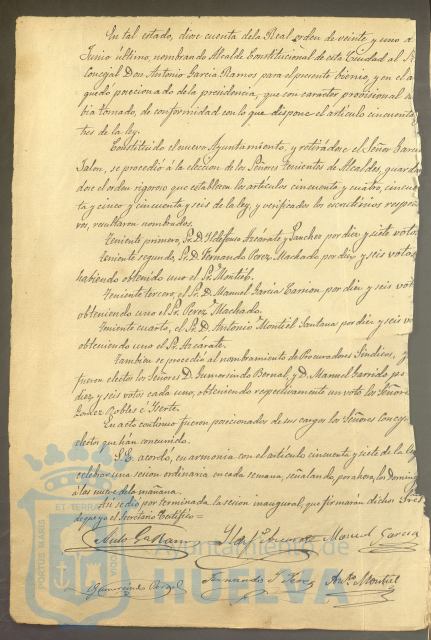 En tal estado, diose cuenta de la Real orden de veinte y uno d
Junio último, nombrando Alcalde Constitucional de esta Ciudad al S
Concejal Don Antonio Garcia Ramos para el presente bienio, y en el a
quedó posesionado de la presidencia, que con carácter provisional a
bia tomado, de conformidad con lo que dispone el artículo cincuenta
tres de la ley.
Constituido el nuevo Ayuntamiento, y retirádose el Señor Garcia
Jalon, se procedió á la eleccion de los Señores Tenientes de Alcaldes, guardan
dose el orden rigoroso que establecen los artículos cincuenta y cuatro, cincuen
ta y cinco y cincuenta y seis de la ley, y verificados los escrutinios respecti
vos, resultaron nombrados.
Teniente primero, Sr. D. Ildefonso Azcárate y Sanchez por diez y siete votos
Teniente segundo, Sr. D. Fernando Perez Machado por diez y seis votos
habiendo obtenido uno el Sr. Montiel.
Teniente tercero, el Sr. D. Manuel Garcia Carrion por diez y seis vot
obteniendo uno el Sr. Perez Machado.
Teniente cuarto, el Sr. D. Antonio Montiel Santana por diez y seis vo
obteniendo uno el Sr. Azcárate.
Tambien se procedió al nombramiento de Procuradores Síndicos, y
fueron electos los Señores D. Gumersindo Bernal y D. Manuel Garrido por
diez y seis votos cada uno, obteniendo respectivamente un voto los Señores
Lopez Robles e Iserte.
En acto continuo fueron posesionados de sus cargos los Señores Concej
electos que han concurrido.
S.E. acordó, en armonia con el artículo cincuenta y siete de la ley
celebrar una sesion ordinaria en cada semana, señalando, por ahora, los Doming
á las nueve de la mañana.
Asi se dió por terminada la sesion inaugural, que firmarán dichos Sres
de que yo el Secretario Certifico =
Anto Ga Ramos Ildefo Azcarate Manuel Garcia
Gumersindo Bernal Fernando P. Anto Montiel
PORTUS MARIS ET TERRAE
Ayuntamiento de
HUELVA